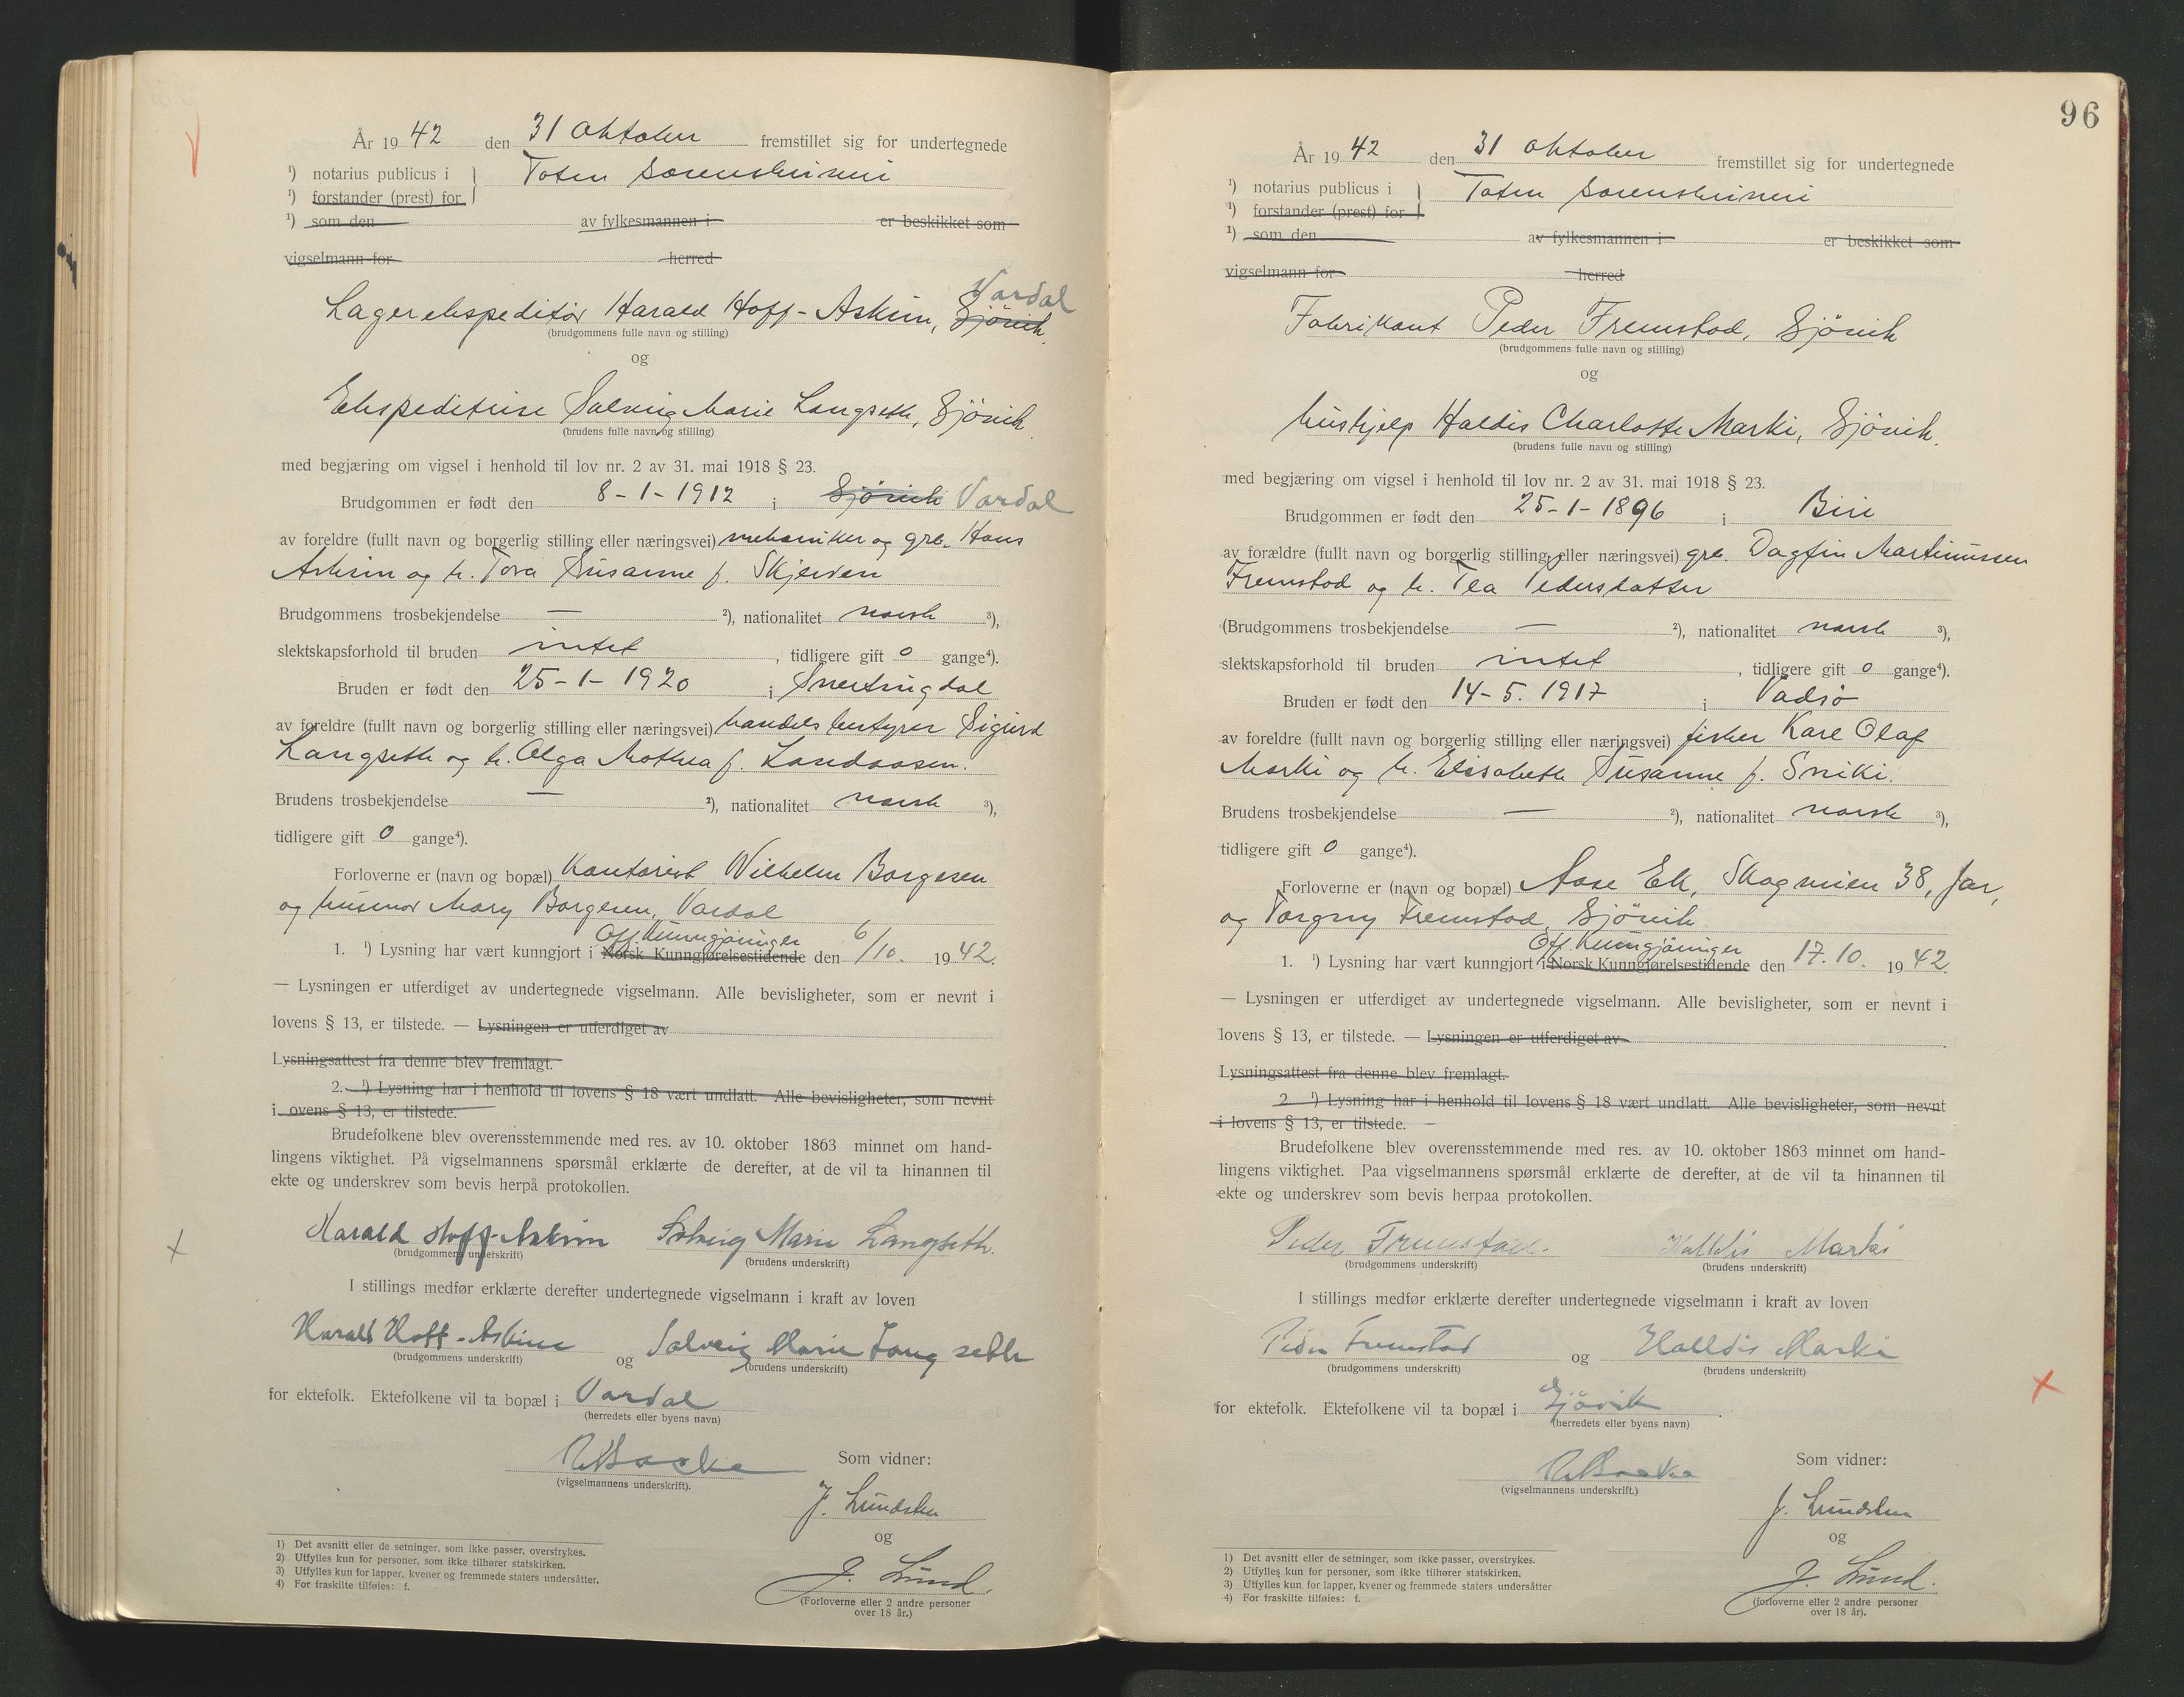 År 19 42 den 31 oktober fremstillet sig for undertegnede
¹) notarius publicus i } Toten sorenskriveri
¹) forstander (prest) for
¹) som den av fylkesmannen i er beskikket som
vigselmann for herred
Vardal
Lagerekspeditør Harald Hoff-Askim, Gjövik.
(brudgommens fulle navn og stilling)
og
Ekspeditrise Solveig Marie Langseth, Gjövik
(brudens fulle navn og stilling)
med begjæring om vigsel i henhold til lov nr. 2 av 31. mai 1918 § 23.
Brudgommen er født den 8-1-1912 i Gjövik Vardal
av foreldre (fullt navn og borgerlig stilling eller næringsvei) mekaniker og grb. Hans
Askim og h. Tora Susanne f. Skjerven
Brudgommens trosbekjendelse — ²), nationalitet norsk ³),
slektskapsforhold til bruden intet, tidligere gift 0 gange⁴).
Bruden er født den 25-1-1920 i Snertingdal
av foreldre (fullt navn og borgerlig stilling eller næringsvei) handelsbestyrer Sigurd
Langseth og h. Olga Mathea f. Landaasen.
Brudens trosbekjendelse — ²), nationalitet norsk ³),
tidligere gift 0 gange⁴).
Forloverne er (navn og bopæl) Kontorist Wilhelm Borgesen
og husmor Mary Borgesen, Vardal
Off. Kunngjøringer
1. ¹) Lysning har vært kunngjort i Norsk Kunngjørelsestidende den 6/10. 19 42.
— Lysningen er utferdiget av undertegnede vigselmann. Alle bevisligheter, som er nevnt i
lovens § 13, er tilstede. — Lysningen er utferdiget av
Lysningsattest fra denne blev fremlagt.
2. ¹) Lysning har i henhold til lovens § 18 vært undlatt. Alle bevisligheter, som nevnt
i ovens § 13, er tilstede.
Brudefolkene blev overensstemmende med res. av 10. oktober 1863 minnet om hand-
lingens viktighet. På vigselmannens spørsmål erklærte de derefter, at de vil ta hinannen til
ekte og underskrev som bevis herpå protokollen.
Harald Hoff-Askim Solveig Marie Langseth.
(brudgommens underskrift) (brudens underskrift)
I stillings medfør erklærte derefter undertegnede vigselmann i kraft av loven
Harald Hoff-Askim og Solveig Marie Langseth
(brudgommens underskrift) (brudens underskrift)
for ektefolk. Ektefolkene vil ta bopæl i Vardal
(herredets eller byens navn)
Som vidner:
(vigselmannens underskrift).
J. Lundsten
og
J. Lund.
(Forloverne eller 2 andre personer
over 18 år.)
1) Det avsnitt eller de setninger, som ikke passer, overstrykes.
2) Utfylles kun for personer, som ikke tilhører statskirken.
3) Utfylles kun for lapper, kvener og fremmede staters undersåtter.
4) For fraskilte tilføies: f.
96
År 19 42 den 31 oktober fremstillet sig for undertegnede
¹) notarius publicus i } Toten sorenskriveri
¹) forstander (prest) for
¹) som den av fylkesmannen i er beskikket som
vigselmann for herred
Fabrikant Peder Fremstad, Gjövik
(brudgommens fulle navn og stilling)
og
hushjelp Haldis Charlotte Marki, Gjövik.
(brudens fulle navn og stilling)
med begjæring om vigsel i henhold til lov nr. 2 av 31. mai 1918 § 23.
Brudgommen er født den 25-1-1896 i Biri
av forældre (fullt navn og borgerlig stilling eller næringsvei) grb. Dagfin Martinussen
Fremstad og h. Tea Pedersdatter
(Brudgommens trosbekjendelse — ²), nationalitet norsk ³),
slektskapsforhold til bruden intet, tidligere gift 0 gange⁴).
Bruden er født den 14-5. 1917 i Vadsø
av foreldre (fullt navn og borgerlig stilling eller næringsvei) fisker Karl Olaf
Marki og h. Elisabeth Susanne f. Sniki.
Brudens trosbekjendelse — ²), nationalitet norsk ³),
tidligere gift 0 gange⁴).
Forloverne er (navn og bopæl) Aase Ek, Skogveien 38, Jar,
og Torgny Fremstad, Gjövik
Off. Kunngjøringer
1. ¹) Lysning har vært kunngjort i Norsk Kunngjørelsestidende den 17.10. 19 42.
— Lysningen er utferdiget av undertegnede vigselmann. Alle bevisligheter, som er nevnt i
lovens § 13, er tilstede. — Lysningen er utferdiget av
Lysningsattest fra denne blev fremlagt.
2 ¹) Lysning har i henhold til lovens § 18 vært undlatt. Alle bevisligheter, som nevnt
i lovens § 13, er tilstede. —
Brudefolkene blev overensstemmende med res. av 10. oktober 1863 minnet om hand-
lingens viktighet. Paa vigselmannens spørsmål erklærte de derefter, at de vil ta hinannen til
ekte og underskrev som bevis herpaa protokollen.
Peder Fremstad. Halldis Marki
(brudgommens underskrift) (brudens underskrift)
I stillings medfør erklærte derefter undertegnede vigselmann i kraft av loven
Peder Fremstad og Halldis Marki
(brudgommens underskrift) (brudens underskrift)
for ektefolk. Ektefolkene vil ta bopæl i Gjövik.
(herredets eller byens navn)
Som vidner:
(vigselmannens underskrift.)
J. Lundsten
og
J. Lund.
(forloverne eller 2 andre personer
over 18 år).
1) Det avsnitt eller de setninger, som ikke passer, overstrykes.
2) Utfylles kun for personer, som ikke tilhører statskirken.
3) Utfylles kun for lapper, kvener og fremmede staters undersåtter
4) For fraskilte tilføies: f.